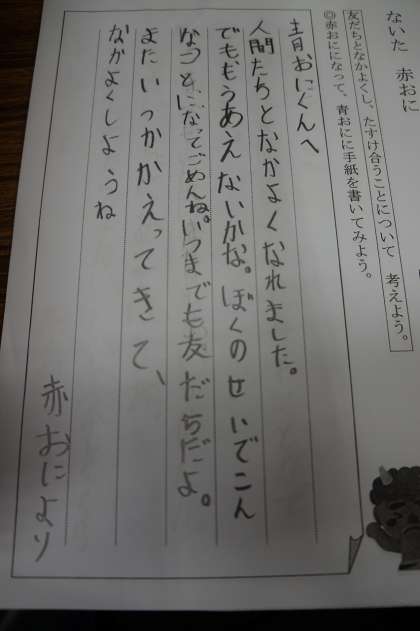 ないた　赤おに
友だちとなかよくし、たすけ合うことについて　考えよう。
◎赤おにになって、青おにに手紙を書いてみよう。
青おにくんへ
人間たちとなかよくなれました。
でももうあえないかな。ぼくのせいでこん
なことになってごめんね。いつまでも友だちだよ。
またいつかかえってきて、
なかよくしようね
赤おにより